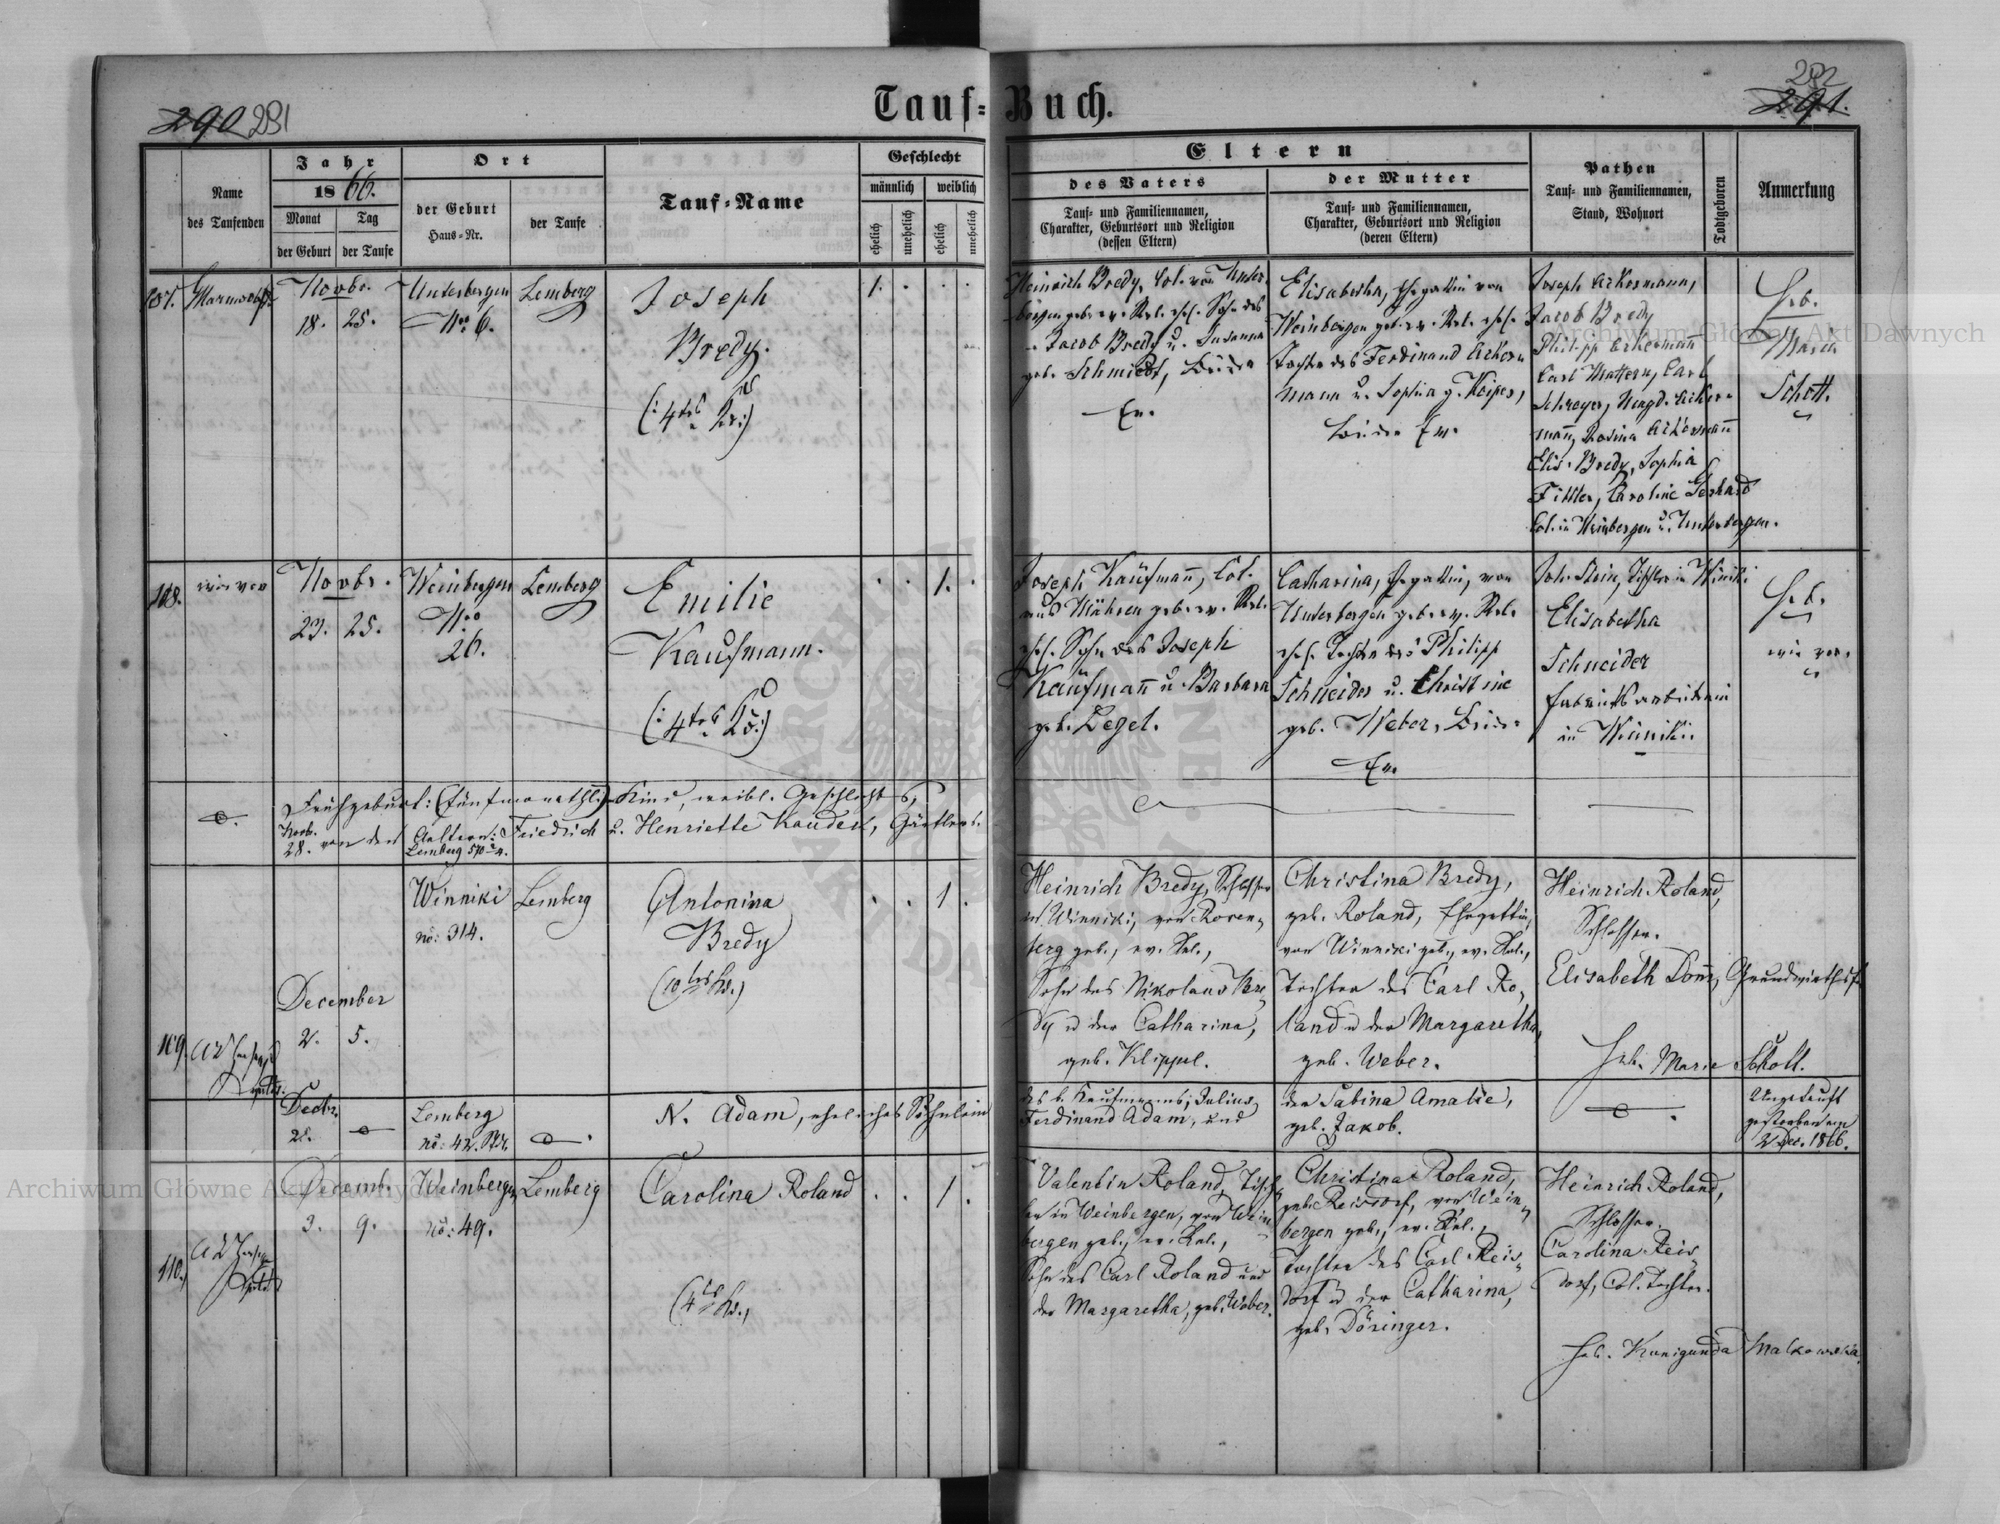 290 281
Tauf-Buch.
282
291.
Name
des Taufenden
Jahr
1866.
Monat
der Geburt
Tag
der Taufe
Ort
der Geburt
Haus-Nr.
der Taufe
Tauf-Name
Geschlecht
männlich
weiblich
ehelich
unehelich
ehelich
unehelich
Eltern
des Vaters
Tauf- und Familiennamen,
Charakter, Geburtsort und Religion
(dessen Eltern)
der Mutter
Tauf- und Familiennamen,
Charakter, Geburtsort und Religion
(deren Eltern)
Pathen
Tauf- und Familiennamen,
Stand, Wohnort
Todtgeboren
Anmerkung
107.
Novbr.
18. 25.
Unterbergen
Nro 6.
Lemberg
Joseph
Bredy.
1.
Heinrich Bredy, Col. von Unter-
bergen geb. ev. Rel. ehel. Sohn des
Jacob Bredy u. Susanna
geb. Schmidt, beide
Ev.
Elisabetha, Ehegattin von
Weinbergen geb. ev. Rel. ehel.
Tochter des Ferdinand Acker-
mann u. Sophia g. Keiper,
beide Ev.
Joseph Ackermann,
Jacob Bredy
Philipp Ackermann
Carl Mattern, Carl
Schreyer, Magd. Acker-
mann, Rosina Ackermann
Elis. Bredy, Sophia
Fittler, Caroline Gerhard
Col. in Weinbergen u. Unterbergen.
Heb.
Marie
Schott.
108.
wie vor
Novbr.
23. 25.
Weinbergen
Nro
26.
Lemberg
Emilie
Kaufmann.
1.
Joseph Kaufmann, Col.
aus Mähren geb. ev. Rel.
ehel. Sohn des Joseph
Kaufmann u. Barbara
geb. Legel.
Catharina, Ehegattin, von
Unterbergen geb. ev. Rel.
ehel. Tochter des Philipp
Schneider u. Christine
geb. Weber, beide
Ev.
Joh. Stein, Tischler in Winiki
Elisabetha
Schneider
Fabriksarbeiterin
in Winiki.
Heb.
wie vor.
Frühgeburt: (fünfmonathl.) Kind, weibl. Geschlechts,
Novb.
28. von den Aeltern: Friedrich u. Henriette Kauder,
Lemberg 570 2/4.
109.
December
2. 5.
Winniki
No: 314.
Lemberg
Antonina
Bredy
1.
Heinrich Bredy, Schlosser
in Winniki, von Rosen-
berg geb., ev. Rel.,
Sohn des Nikolaus Bre-
dy u der Catharina,
geb. Klippel.
Christina Bredy,
geb. Roland, Ehegattin,
von Winniki geb., ev. Rel.,
Tochter des Carl Ro-
land u der Margaretha,
geb. Weber.
Heinrich Roland,
Schlosser.
Elisabeth Grundwirthsf.
Heb. Marie Schott.
Decbr.
2.
Lemberg
No: 42.
N. Adam, eheliches Söhnlein
des Kaufmanns, Julius
Ferdinand Adam, und
der Sabina Amalie,
geb. Jakob.
Ungetauft
gestorben am
2 Dec. 1866.
110.
Decemb.
3. 9.
Weinbergen
No: 49.
Lemberg
Carolina Roland
1.
Valentin Roland, Tisch-
ler in Weinbergen, von Wein-
bergen geb., ev. Rel.,
Sohn des Carl Roland und
der Margaretha, geb. Weber.
Christina Roland,
geb. Reisdorf, von Wein-
bergen geb., ev. Rel.,
Tochter des Carl Reis-
dorf u der Catharina,
geb. Döringer.
Heinrich Roland,
Schlosser.
Carolina Reis-
dorf, Col. Tochter.
Heb. Kunigunda Malkowska.
Archiwum Główne Akt Dawnych
Archiwum Główne Akt Dawnych